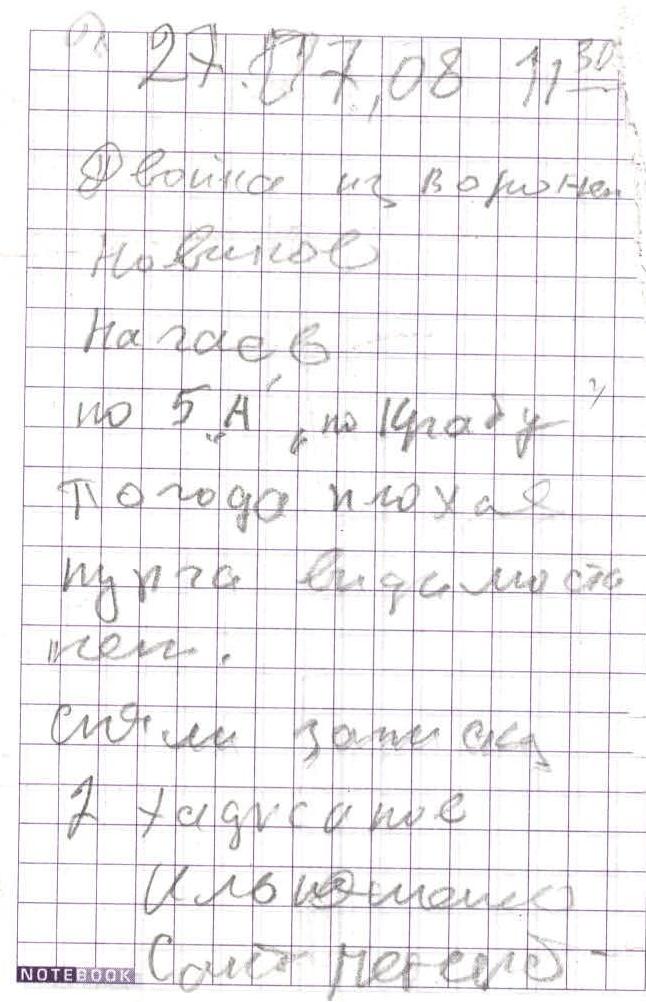 27.07.08 11 30
Двойка из Воронеж
Новиков
Нагаев
по 5 "А", по Крабу"
Погода плохая
пурга видимость
нет.
сняли записку
Сант Петерб-
NOTEBOOK